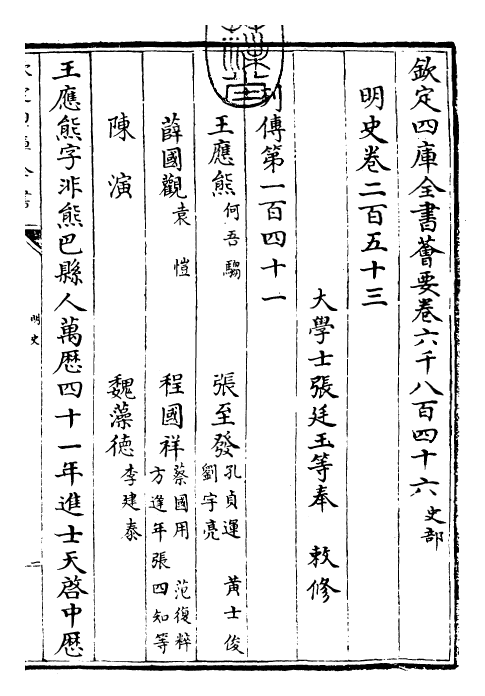 欽定四庫全書薈要卷六千八百四十六 史部
明史卷二百五十三
大學士張廷玉等奉 敕修
列傳第一百四十一
王應熊 何吾騶 張至發 孔貞運 黃士俊 劉宇亮
薛國觀 袁愷 程國祥 蔡國用 范復粹 方逢年 張四知等
陳演 魏藻德 李建泰
王應熊字非熊巴縣人萬歷四十一年進士天啓中歷
明史